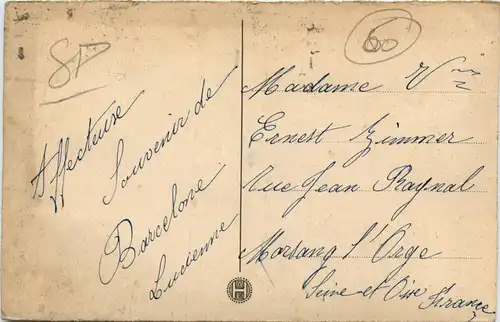 85
60
Affecteuse
Souvenir de
Barcelone
Lucienne
Madame Vve
Ernest Zimmer
Rue Jean Raynal
Morsang l'Orge
Seine et Oise France